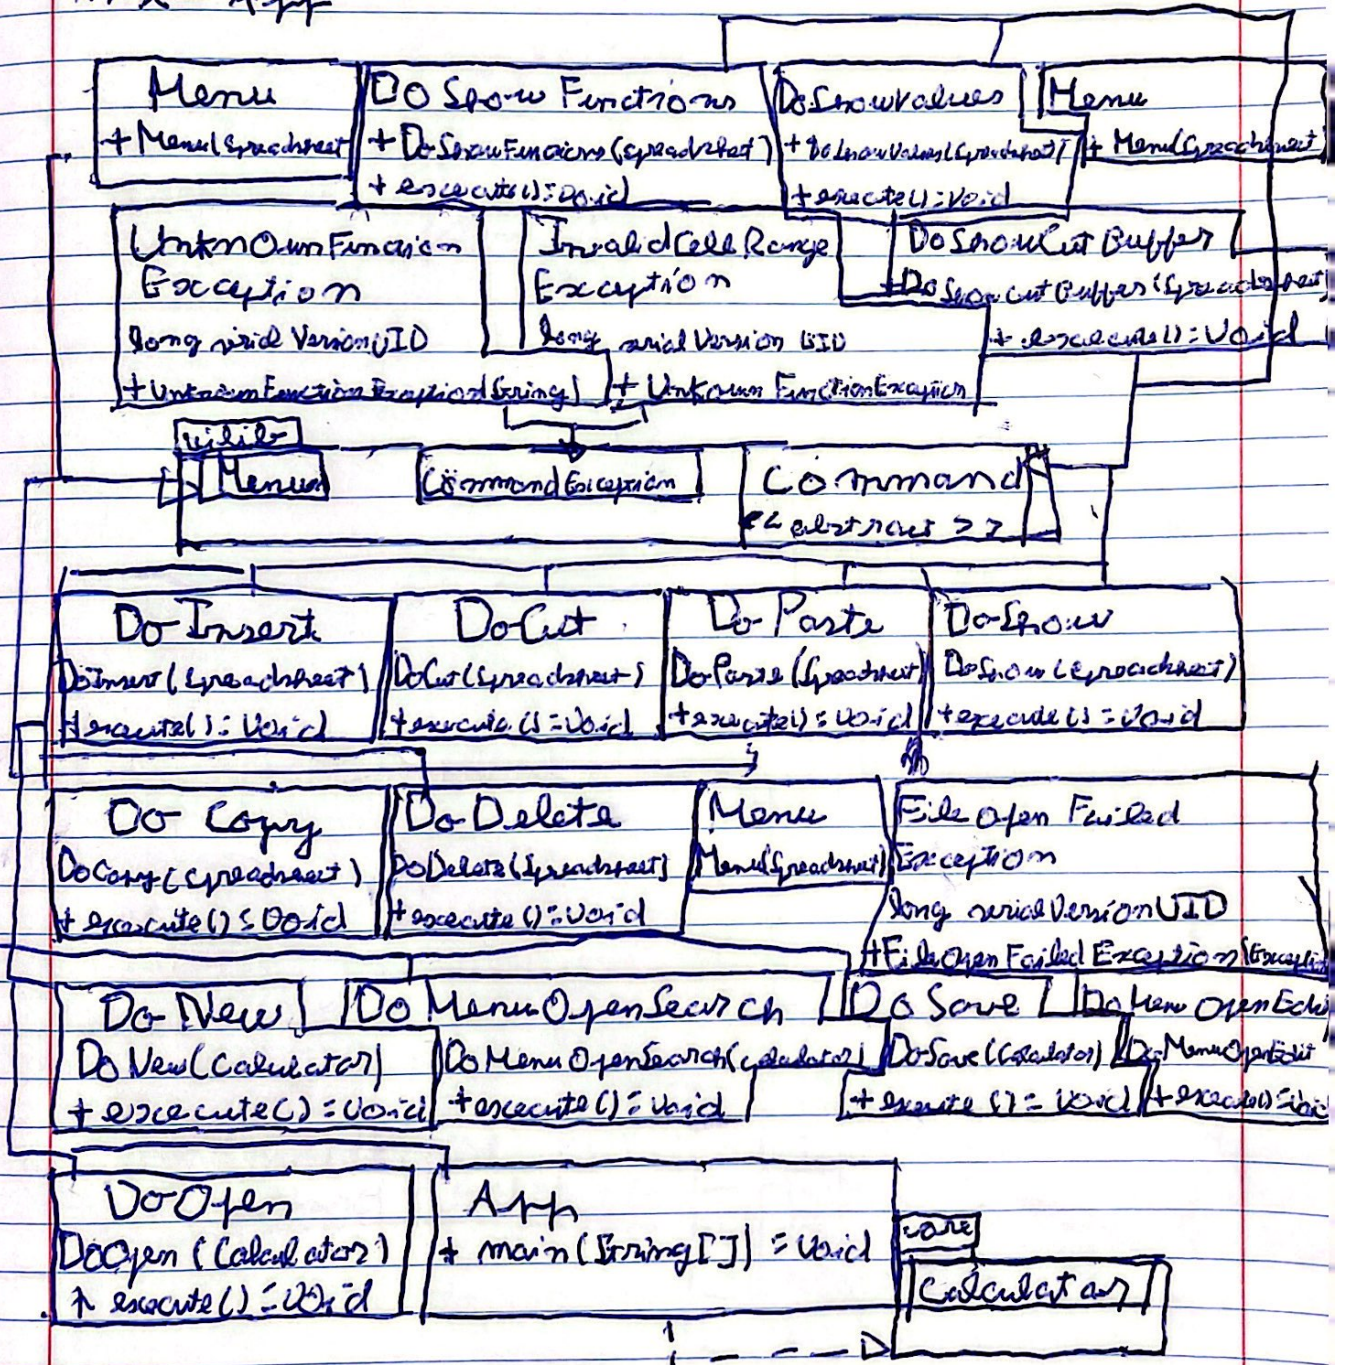 App
Menu
+ Menu(Spreadsheet
Do Show Functions
+ DoShowFuncions(spreadsheet)
+ execute():void
DoShowValues
+ DoShowValues(Spreadsheet)
+ execute():void
Menu
+ Menu(Spreadsheet)
UnknownFuncion
Exception
long serial VersionUID
+ UnknownFunctionException(String)
InvalidCellRange
Exception
long serial Version UID
+ Unkown FunctionException
DoShowCutBuffer
+DoShowCutBuffer(Spreadsheet)
+ execute():Void
uilib
Menu
CommandException
Command
<< abstract >>
DoInsert
DoInsert(Spreadsheet)
+execute():Void
DoCut
DoCut(Spreadsheet)
+execute():Void
Do Paste
DoPaste(Spreadsheet)
+execute():void
DoShow
DoShow(Spreadsheet)
+execute():Void
Do Copy
DoCopy(Spreadsheet)
+ execute():Void
DoDelete
DoDelete(Spreadsheet)
+execute():void
Menu
Menu(Spreadsheet)
File Open Failed
Exception
long serialVersionUID
+FileOpenFailed Exception(Exception
Do New
Do New(Calculator)
+ execute():void
Do MenuOpenSearch
DoMenuOpenSearch(calculator)
+execute():void
Do Save
DoSave(Calculator)
+ execute():void
DoMenuOpenEdi
DoMenuOpenEdit
+execute():voi
DoOpen
DoOpen(Calculator)
+ execute():void
App
+ main(String[]):void
core
Calculator